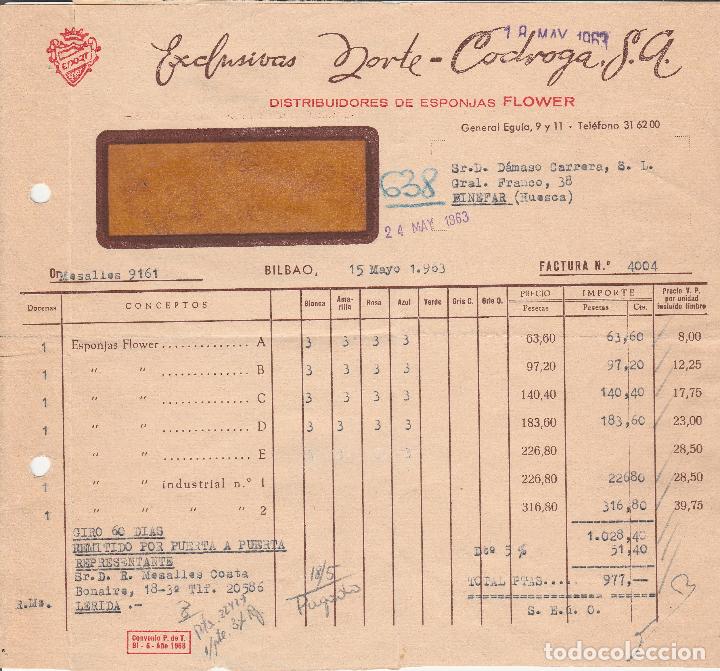 18 MAY 1963
Exclusivas Norte-Codroga, S.A.
DISTRIBUIDORES DE ESPONJAS FLOWER
General Eguía, 9 y 11 - Teléfono 31 62 00
638
Sr.D. Dámaso Carrera, S. L.
Gral. Franco, 38
BINEFAR (Huesca)
24 MAY 1963
Or. Mesalles 9161 BILBAO, 15 Mayo 1.963 FACTURA N.º 4004
Docenas CONCEPTOS Blanca Ama-rilla Rosa Azul Verde Gris C. Gris O. PRECIO Pesetas IMPORTE Pesetas Cts. Precio V. P. por unidad incluido timbre
1 Esponjas Flower .............. A 3 3 3 3 63,60 63,60 8,00
1 " " .............. B 3 3 3 3 97,20 97,20 12,25
1 " " .............. C 3 3 3 3 140,40 140,40 17,75
1 " " .............. D 3 3 3 3 183,60 183,60 23,00
" " .............. E 226,80 28,50
1 " " industrial n.º 1 226,80 22680 28,50
1 " " " " 2 316,80 316,80 39,75
GIRO 60 DIAS 1.028,40
REMITIDO POR PUERTA A PUERTA Dtº 5 % 51,40
REPRESENTANTE
Sr.D. R. Mesalles Costa TOTAL PTAS.... 977,—
Bonaire, 18-3º Tlf. 20586
R.Ms. LERIDA .- S. E. ú O.
18/5
Pagado
Convenio P. de T.
BI - 6 - Año 1963